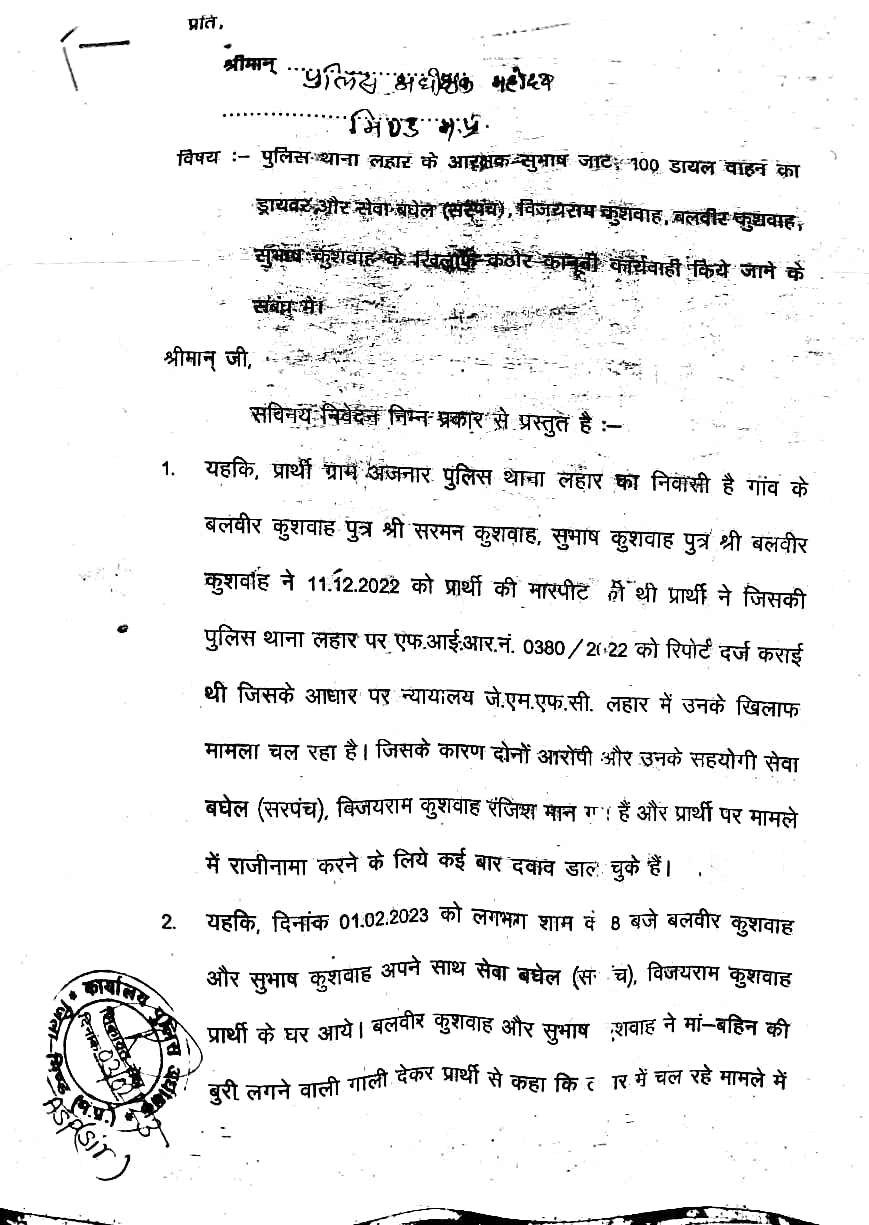 प्रति,
श्रीमान् ........................
पुलिस अधीक्षक महोदय
........................
भिण्ड म.प्र.
विषय :– पुलिस थाना लहार के आरक्षक सुभाष जाट, 100 डायल वाहन का
ड्रायवर और सेवा बघेल (सरपंच), विजयराम कुशवाह, बलवीर कुशवाह,
सुभाष कुशवाह के खिलाफ कठोर कानूनी कार्यवाही किये जाने के
संबंध में।
श्रीमान् जी,
सविनय निवेदन निम्न प्रकार से प्रस्तुत है :–
1. यहकि, प्रार्थी ग्राम अजनार पुलिस थाना लहार का निवासी है गांव के
बलवीर कुशवाह पुत्र श्री सरमन कुशवाह, सुभाष कुशवाह पुत्र श्री बलवीर
कुशवाह ने 11.12.2022 को प्रार्थी की मारपीट की थी प्रार्थी ने जिसकी
पुलिस थाना लहार पर एफ.आई.आर.नं. 0380/2022 को रिपोर्ट दर्ज कराई
थी जिसके आधार पर न्यायालय जे.एम.एफ.सी. लहार में उनके खिलाफ
मामला चल रहा है। जिसके कारण दोनों आरोपी और उनके सहयोगी सेवा
बघेल (सरपंच), विजयराम कुशवाह रंजिश मान हैं और प्रार्थी पर मामले
में राजीनामा करने के लिये कई बार दवाव डाल चुके हैं।
2. यहकि, दिनांक 01.02.2023 को लगभग शाम के 8 बजे बलवीर कुशवाह
और सुभाष कुशवाह अपने साथ सेवा बघेल (सरपंच), विजयराम कुशवाह
प्रार्थी के घर आये। बलवीर कुशवाह और सुभाष कुशवाह ने मां–बहिन की
बुरी लगने वाली गाली देकर प्रार्थी से कहा कि में चल रहे मामले में
कार्यालय पुलिस अधीक्षक
जिला-भिण्ड (म.प्र.)
दिनांक
ASP (Sir)